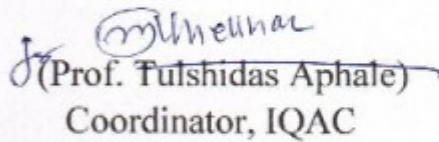 (Prof. Tulshidas Aphale)
Coordinator, IQAC